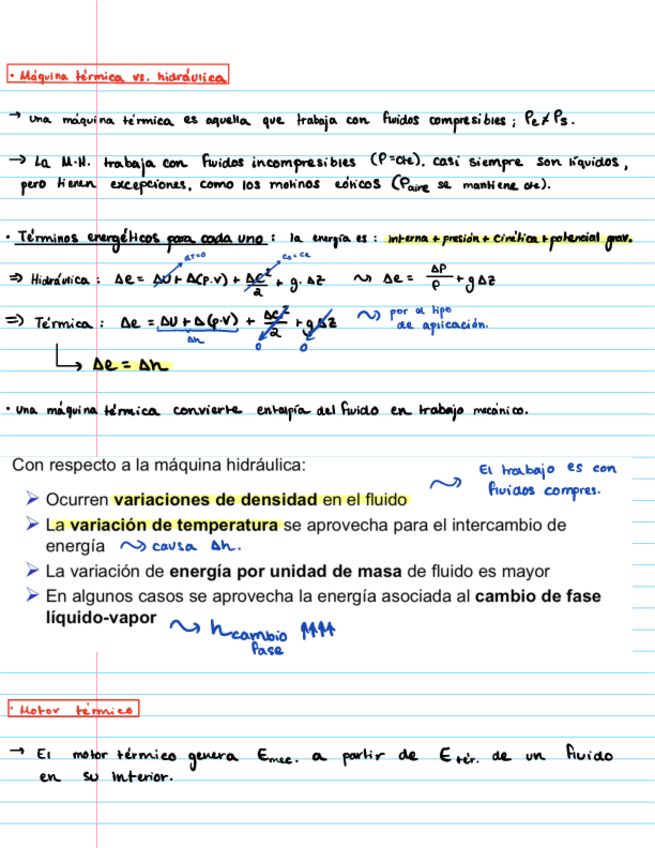 · Máquina térmica vs. hidráulica
→ una máquina térmica es aquella que trabaja con fluidos compresibles ; ρe ≠ ρs.
→ La M.H. trabaja con fluidos incompresibles (ρ=cte). casi siempre son líquidos,
pero tienen excepciones, como los molinos eólicos (ρaire se mantiene cte).
· Términos energéticos para cada uno : la energía es : interna + presión + cinética + potencial grav.
ΔT=0 ce=cs
⇒ Hidráulica : Δe = ΔU + Δ(p.v) + Δc²/2 + g. Δz ⇝ Δe = ΔP/ρ + gΔz
⇒ Térmica : Δe = ΔU + Δ(p.v) + Δc²/2 + gΔz ⇝ por el tipo
de aplicación.
Δh 0 0
↳ Δe = Δh
· una máquina térmica convierte entalpía del fluido en trabajo mecánico.
Con respecto a la máquina hidráulica:
⇝ El trabajo es con
fluidos compres.
➢ Ocurren variaciones de densidad en el fluido
➢ La variación de temperatura se aprovecha para el intercambio de
energía ⇝ causa Δh.
➢ La variación de energía por unidad de masa de fluido es mayor
➢ En algunos casos se aprovecha la energía asociada al cambio de fase
líquido-vapor ⇝ hcambio fase ↑↑↑
· Motor térmico
→ El motor térmico genera Emec. a partir de Etér. de un fluido
en su interior.